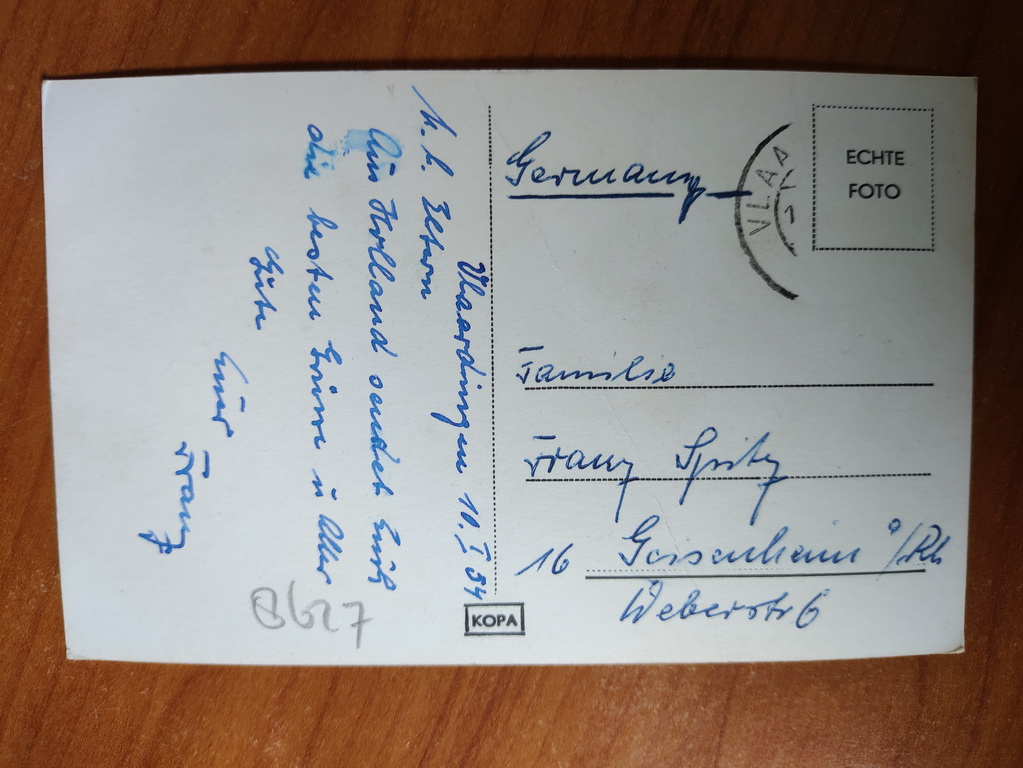 Vlaardingen 10. I 54
M. l. Eltern
Aus Holland sendet Euch
die besten Grüsse u Alles
Gute
Euer
Franz
8627
KOPA
ECHTE
FOTO
VLAA
Germany
Familie
Franz Spitz
16 Geisenheim a/Rh
Weberstr 6